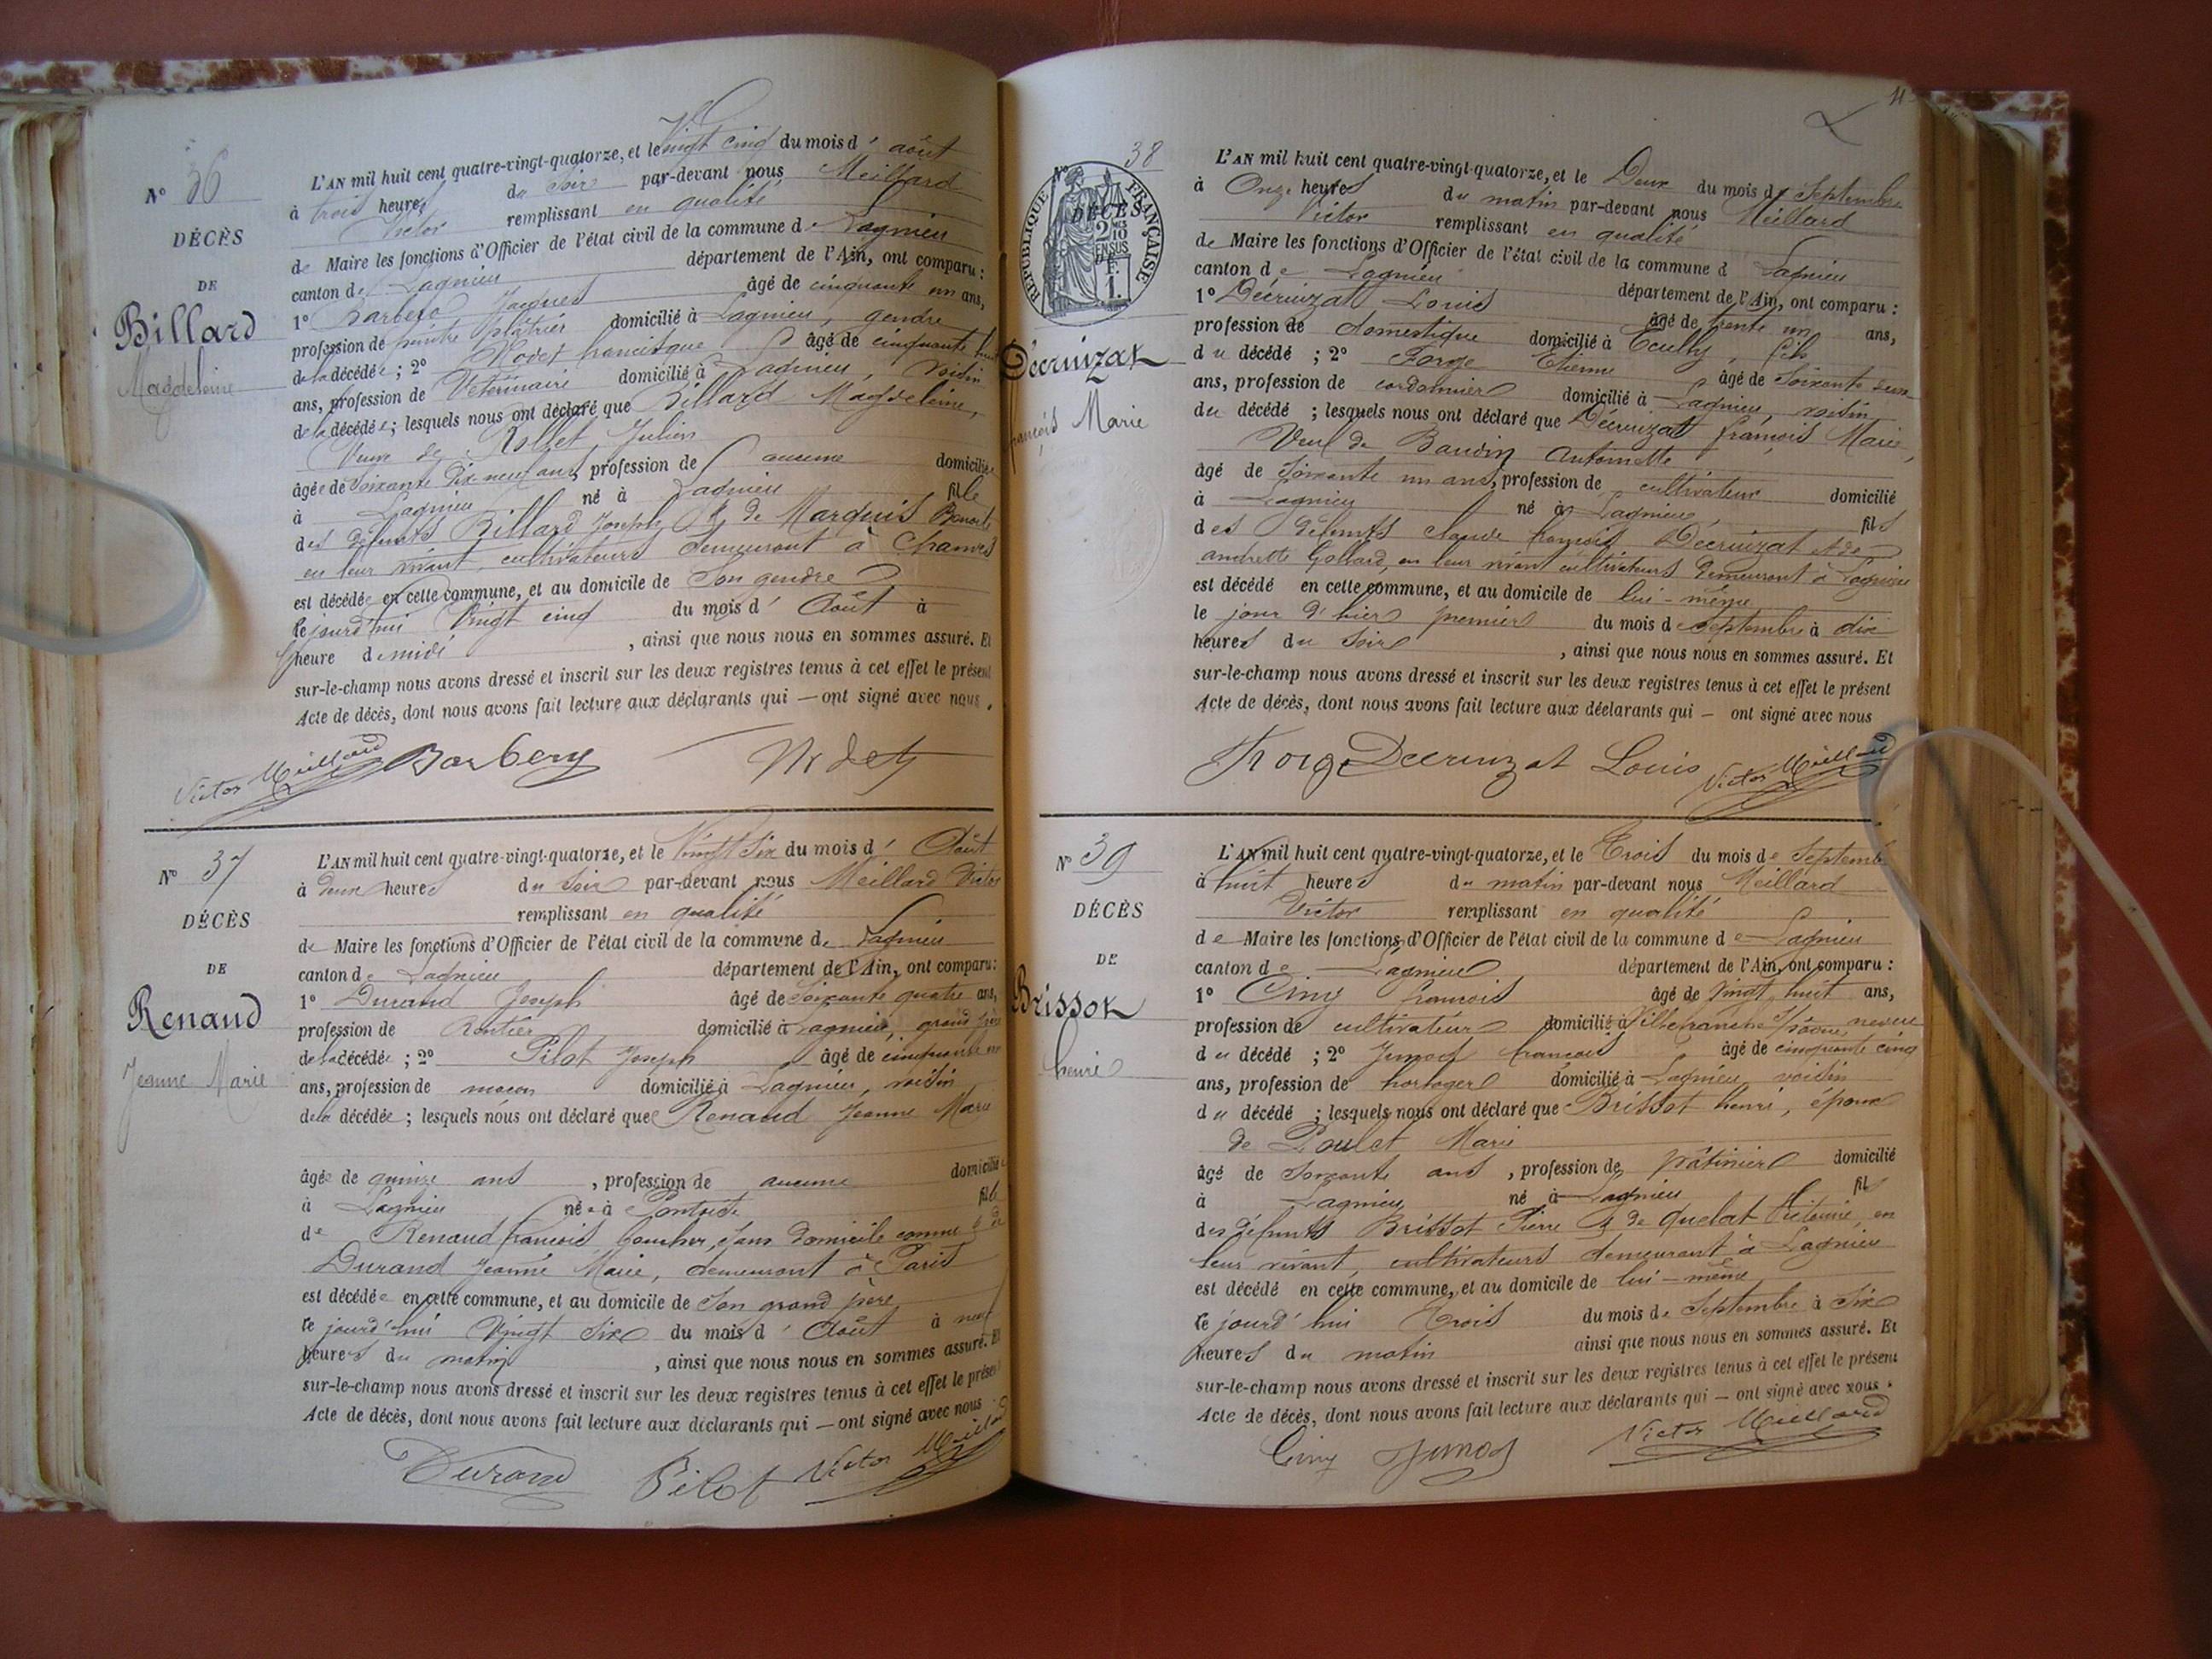 N° 36
DÉCÈS
DE
Billard
Magdeleine
L'AN mil huit cent quatre-vingt-quatorze, et le vingt cinq du mois d' août
à trois heures du soir par-devant nous Meillard
Victor remplissant en qualité
de Maire les fonctions d'Officier de l'état civil de la commune de Lagnieu
canton de Lagnieu département de l'Ain, ont comparu :
1° Jacques âgé de cinquante un ans,
profession de peintre plâtrier domicilié à Lagnieu, gendre
de la décédée ; 2° francisque âgé de cinquante huit
ans, profession de Vétérinaire domicilié à Lagnieu, voisin
de la décédée ; lesquels nous ont déclaré que Billard Magdeleine,
Veuve de Rollet Julien
âgée de soixante dix neuf ans, profession de aucune domiciliée
à Lagnieu né à Lagnieu fille
des défunts Billard Joseph & de Marquis Benoite
en leur vivant, cultivateurs demeurant à
est décédée en cette commune, et au domicile de son gendre
le jourd'hui Vingt cinq du mois d' Août à
heure de midi , ainsi que nous nous en sommes assuré. Et
sur-le-champ nous avons dressé et inscrit sur les deux registres tenus à cet effet le présent
Acte de décès, dont nous avons fait lecture aux déclarants qui — ont signé avec nous.
Victor Meillard Barbery
N° 37
DÉCÈS
DE
Renaud
Jeanne Marie
L'AN mil huit cent quatre-vingt-quatorze, et le Vingt Six du mois d' Août
à deux heures du soir par-devant nous Meillard Victor
remplissant en qualité
de Maire les fonctions d'Officier de l'état civil de la commune de Lagnieu
canton de Lagnieu département de l'Ain, ont comparu :
1° Durand Joseph âgé de soixante quatre ans,
profession de Rentier domicilié à Lagnieu, grand père
de la décédée ; 2° Pilot Joseph âgé de cinquante un
ans, profession de maçon domicilié à Lagnieu, voisin
de la décédée ; lesquels nous ont déclaré que Renaud Jeanne Marie
âgée de quinze ans , profession de aucune domiciliée
à Lagnieu née à Pontoise fille
de Renaud françois boucher, sans domicile connu & de
Durand Jeanne Marie, demeurant à Paris
est décédée en cette commune, et au domicile de son grand père
le jourd'hui Vingt Six du mois d' Août à neuf
heures du matin , ainsi que nous nous en sommes assuré. Et
sur-le-champ nous avons dressé et inscrit sur les deux registres tenus à cet effet le présent
Acte de décès, dont nous avons fait lecture aux déclarants qui — ont signé avec nous.
Durand Pilot Victor Meillard
N° 38
RÉPUBLIQUE FRANÇAISE
DÉCÈS
2 10
EN SUS
1
Décruizat
françois Marie
L'AN mil huit cent quatre-vingt-quatorze, et le Deux du mois de Septembre
à Onze heures du matin par-devant nous Meillard
Victor remplissant en qualité
de Maire les fonctions d'Officier de l'état civil de la commune d Lagnieu
canton de Lagnieu département de l'Ain, ont comparu :
1° Décruizat Louis âgé de trente un ans,
profession de domestique domicilié à Ecully, fils
du décédé ; 2° Forge Etienne âgé de soixante deux
ans, profession de cordonnier domicilié à Lagnieu, voisin
du décédé ; lesquels nous ont déclaré que Décruizat françois Marie,
Veuf de Baudin Antoinette
âgé de soixante un ans, profession de cultivateur domicilié
à Lagnieu né à Lagnieu fils
des défunts claude françois Décruizat & de
andrette en leur vivant cultivateurs demeurant à Lagnieu
est décédé en cette commune, et au domicile de lui-même
le jour d'hier premier du mois de Septembre à dix
heures du soir , ainsi que nous nous en sommes assuré. Et
sur-le-champ nous avons dressé et inscrit sur les deux registres tenus à cet effet le présent
Acte de décès, dont nous avons fait lecture aux déclarants qui — ont signé avec nous
Decruizat Louis Victor Meillard
N° 39
DÉCÈS
DE
Brissot
henri
L'AN mil huit cent quatre-vingt-quatorze, et le Trois du mois de Septembre
à huit heures du matin par-devant nous Meillard
Victor remplissant en qualité
de Maire les fonctions d'Officier de l'état civil de la commune de Lagnieu
canton de Lagnieu département de l'Ain, ont comparu :
1° Ciny francois âgé de Vingt huit ans,
profession de cultivateur domicilié à Villefranche s/ saône, neveu
du décédé ; 2° Junod françois âgé de cinquante cinq
ans, profession de horloger domicilié à Lagnieu voisin
du décédé ; lesquels nous ont déclaré que Brissot henri, époux
de Poulet Marie
âgé de soixante ans , profession de pâtissier domicilié
à Lagnieu né à Lagnieu fils
des défunts Brissot Pierre & de quelat en
leur vivant, cultivateurs demeurant à Lagnieu
est décédé en cette commune, et au domicile de lui-même
le jourd'hui Trois du mois de Septembre à Six
heures du matin ainsi que nous nous en sommes assuré. Et
sur-le-champ nous avons dressé et inscrit sur les deux registres tenus à cet effet le présent
Acte de décès, dont nous avons fait lecture aux déclarants qui — ont signé avec nous.
Ciny Junod Victor Meillard